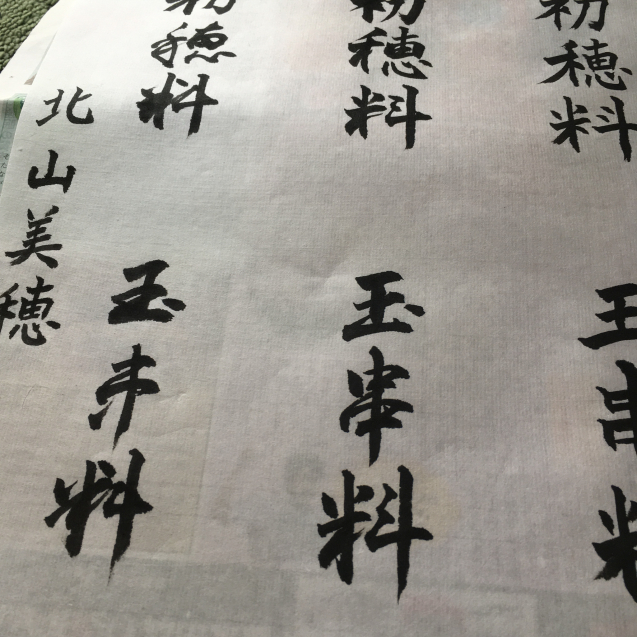 初穂料
玉串料
初穂料
玉串料
初穂料
玉串料
北山美穂